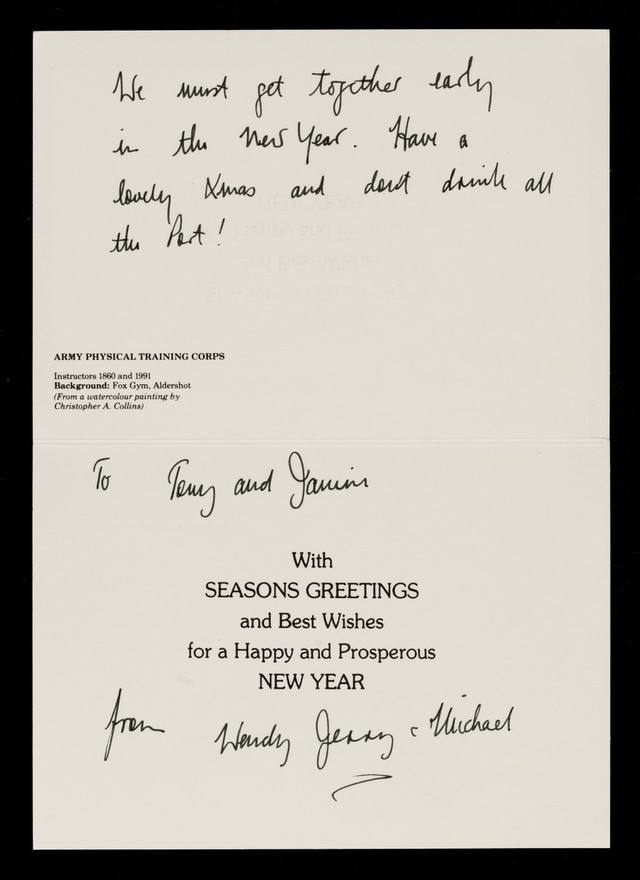 We must get together early
in the New Year. Have a
lovely Xmas and dont drink all
the Port!
ARMY PHYSICAL TRAINING CORPS
Instructors 1860 and 1991
Background: Fox Gym, Aldershot
(From a watercolour painting by
Christopher A. Collins)
To Tony and
With
SEASONS GREETINGS
and Best Wishes
for a Happy and Prosperous
NEW YEAR
from Wendy Jenny & Michael